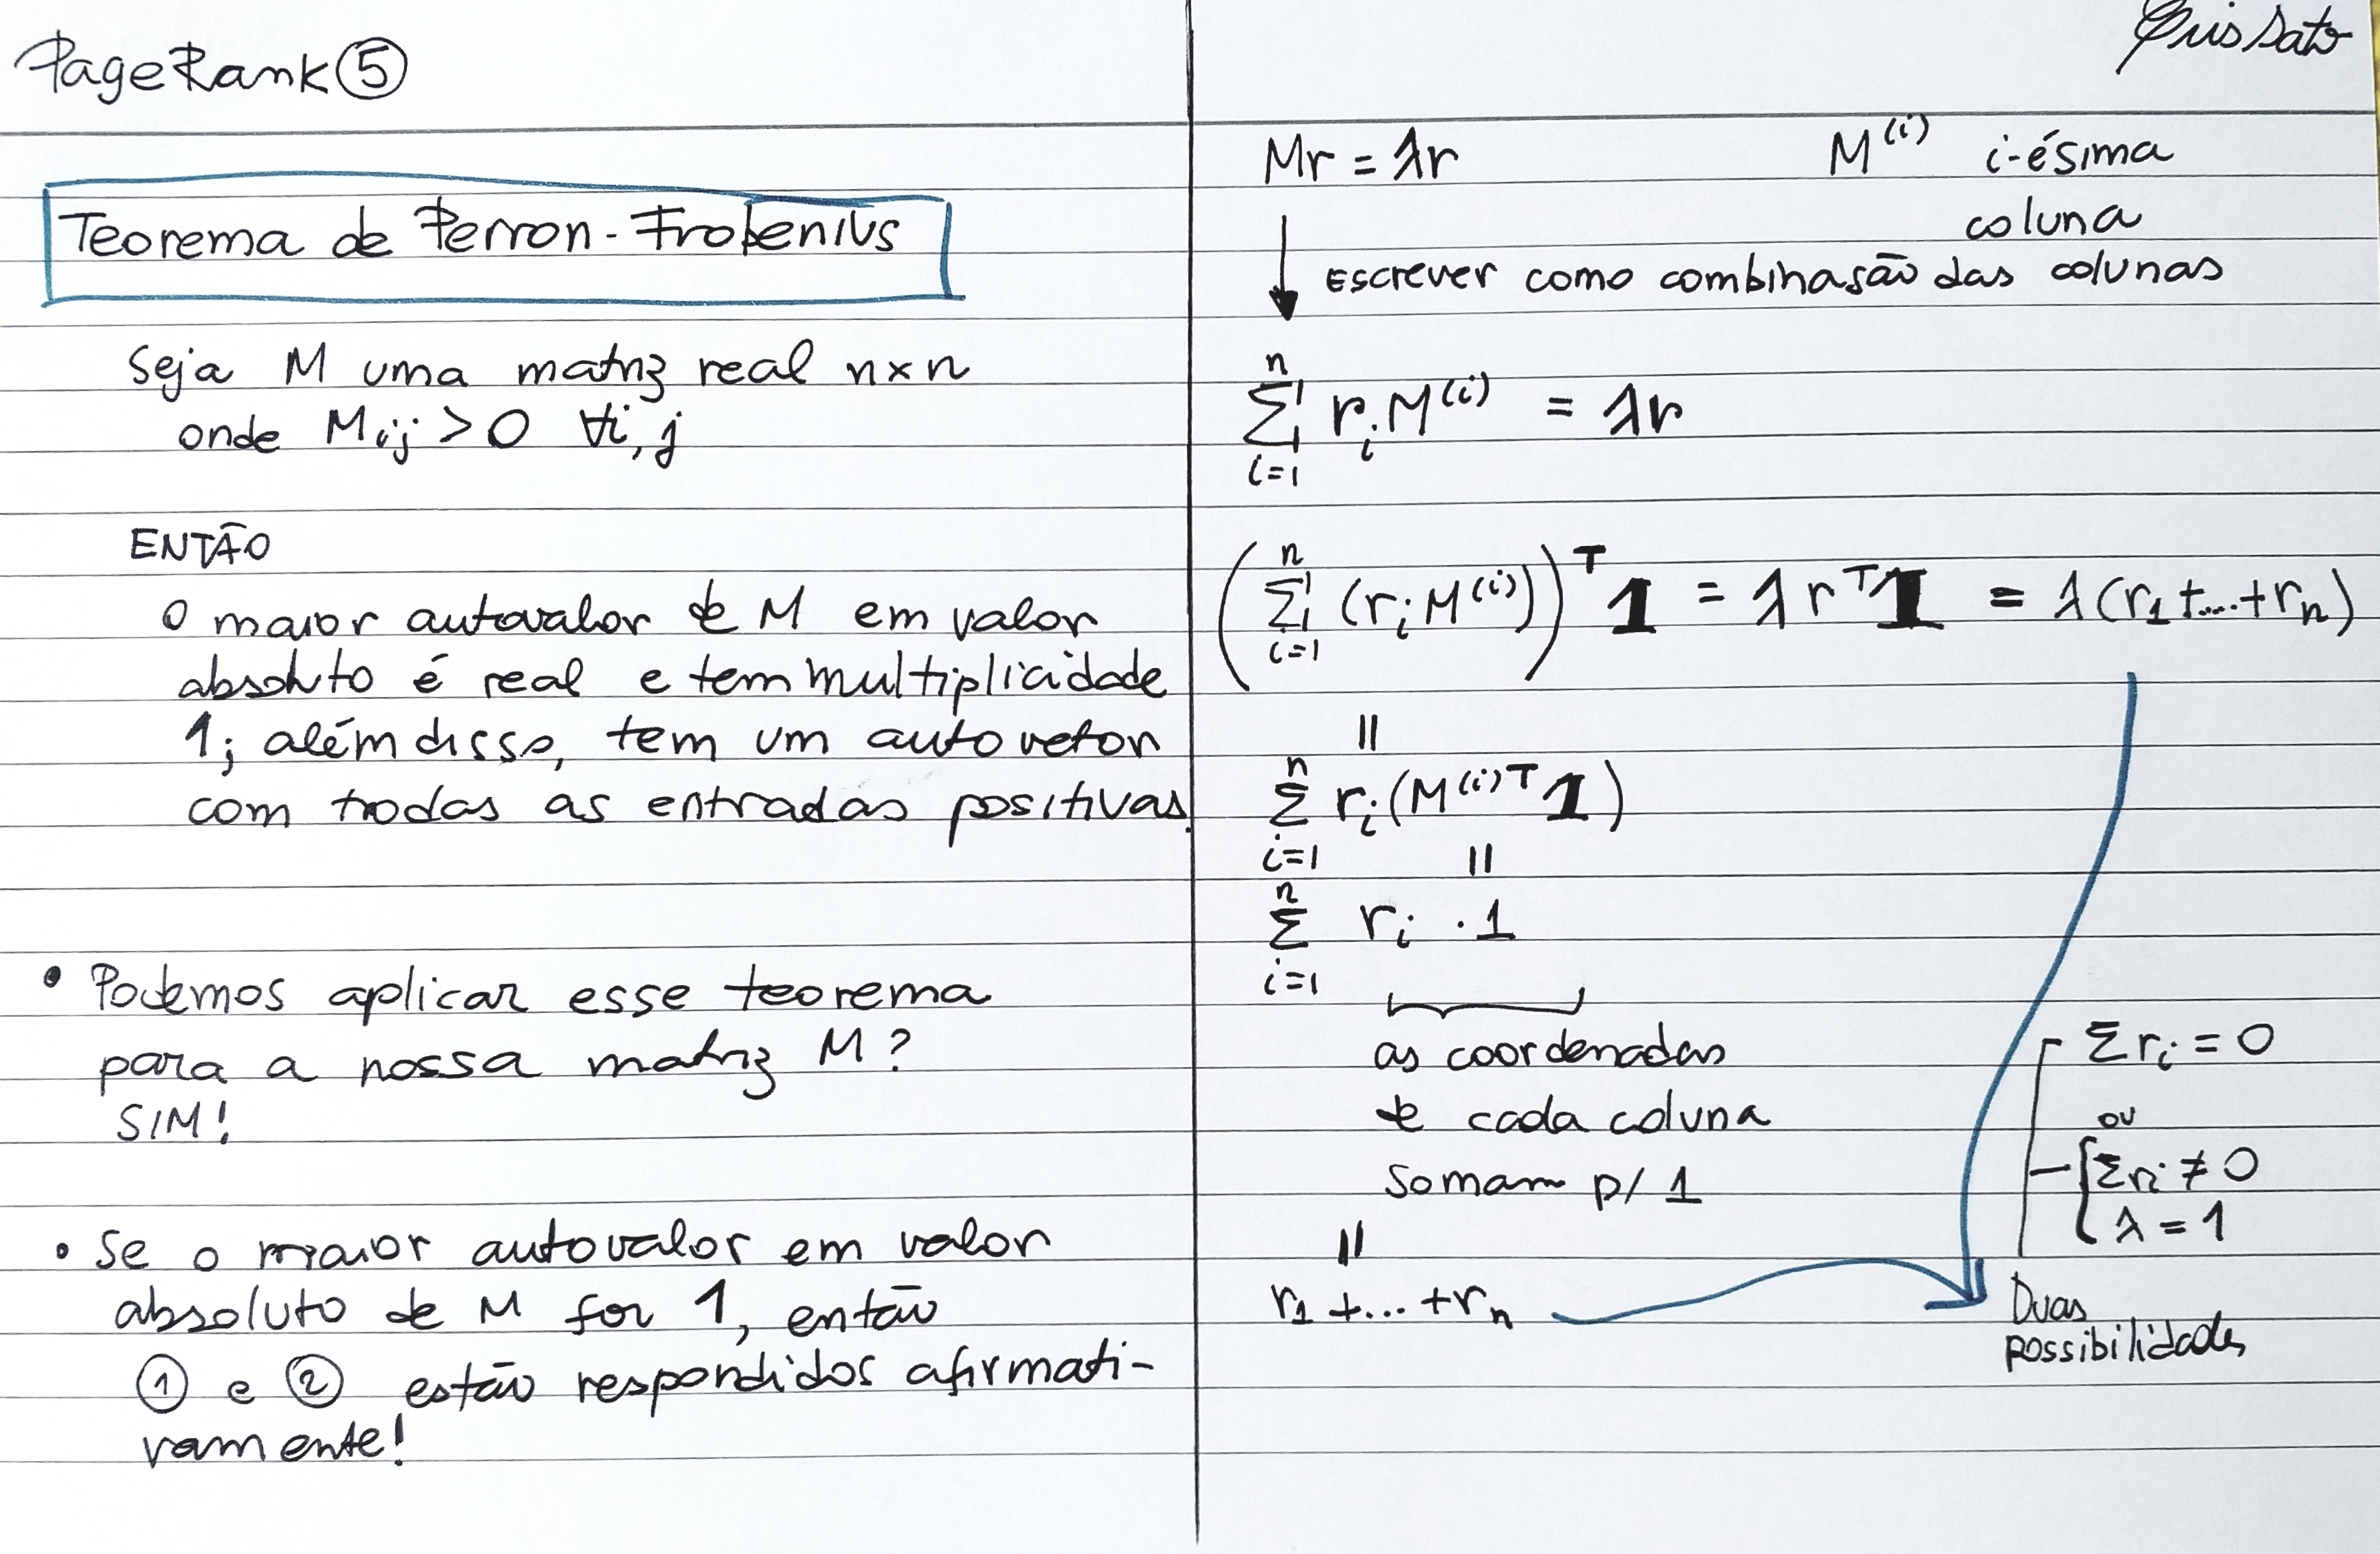 PageRank ⑤
Teorema de Perron-Frobenius
Seja M uma matriz real n×n
onde Mij > 0 ∀i,j
ENTÃO
O maior autovalor de M em valor
absoluto é real e tem multiplicidade
1; além disso, tem um autovetor
com todas as entradas positivas.
• Podemos aplicar esse teorema
para a nossa matriz M?
SIM!
• Se o maior autovalor em valor
absoluto de M for 1, então
① e ② estão respondidos afirmati-
vamente!
Cris Sato
Mr = λr
M⁽ⁱ⁾ i-ésima
coluna
Escrever como combinasão das colunas
n
Σ rᵢ M⁽ⁱ⁾ = λr
i=1
n
(Σ (rᵢ M⁽ⁱ⁾))ᵀ 𝟏 = λ rᵀ𝟏 = λ(r₁+...+rₙ)
i=1
=
n
Σ rᵢ (M⁽ⁱ⁾ᵀ 𝟏)
i=1 =
n
Σ rᵢ · 1
i=1
as coordenadas
de cada coluna
somam p/ 1
=
r₁ +... +rₙ
Σ rᵢ = 0
ou
{Σ rᵢ ≠ 0
λ = 1
Duas
possibilidades